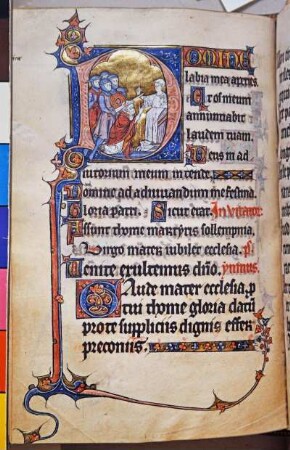 Domine
labia mea aperies
Et os meum
annuntiabit
laudem tuam.
Deus in ad
iutorium meum intende.
Domine ad adiuuandum me festina.
Gloria patri. Sicut erat.
Assunt thome martyris sollempnia.
Virgo mater iubilet ecclesia. ps
Venite exultemus dño. ymnus
Gaude mater ecclesia. p
tui thome gloria
pro te suppliciis dignis effer
preconiis.